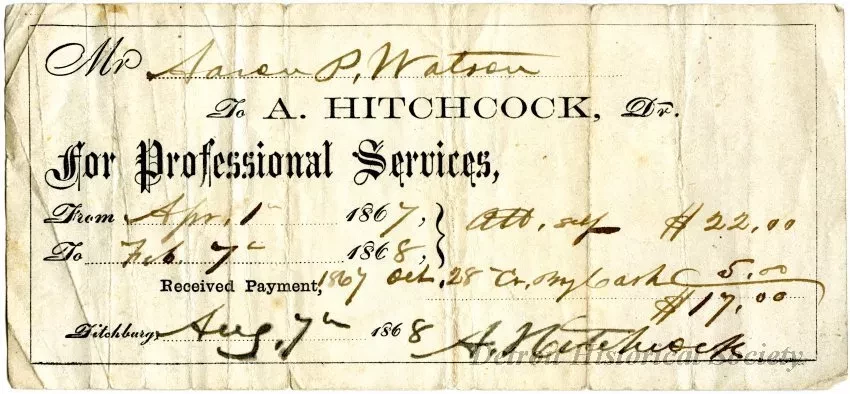 Mr Aaron P. Watson
To A. HITCHCOCK, Dr.
For Professional Services,
From Apr. 1st 1867, } Att. self $22.00
To Feb. 7th 1868,
Received Payment, 1867 Oct. 28 Cr. By Cash 5.00
$17.00
Fitchburg, Aug. 7th 1868 A. Hitchcock
Detroit Historical Society